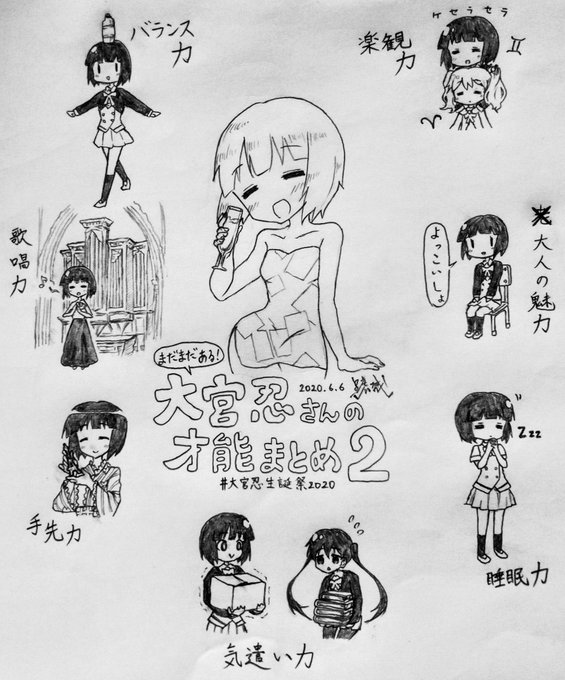 バランス
力
ケセラセラ
楽観
力
♊
♈
歌唱力
♪
大人の魅力
よっこいしょ
まだまだある!
2020.6.6
大宮忍さんの
才能まとめ2
#大宮忍生誕祭2020
手先力
zzz
睡眠力
気遣い力